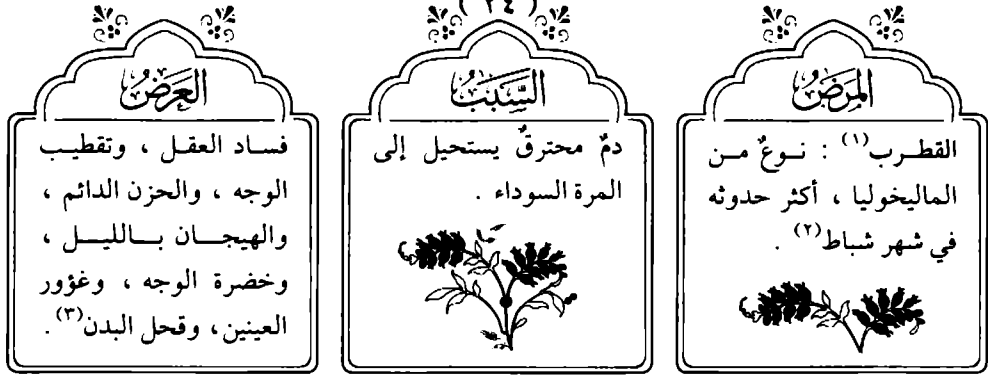 ( ٣٤ )
المَرَضُ
القطرب(١) : نوعٌ من
الماليخوليا ، أكثر حدوثه
في شهر شباط(٢) .
السَّبَبُ
دمٌ محترقٌ يستحيل إلى
المرة السوداء .
العَرَضُ
فساد العقل ، وتقطيب
الوجه ، والحزن الدائم ،
والهيجان بالليل ،
وخضرة الوجه ، وغؤور
العينين، وقحل البدن(٣) .